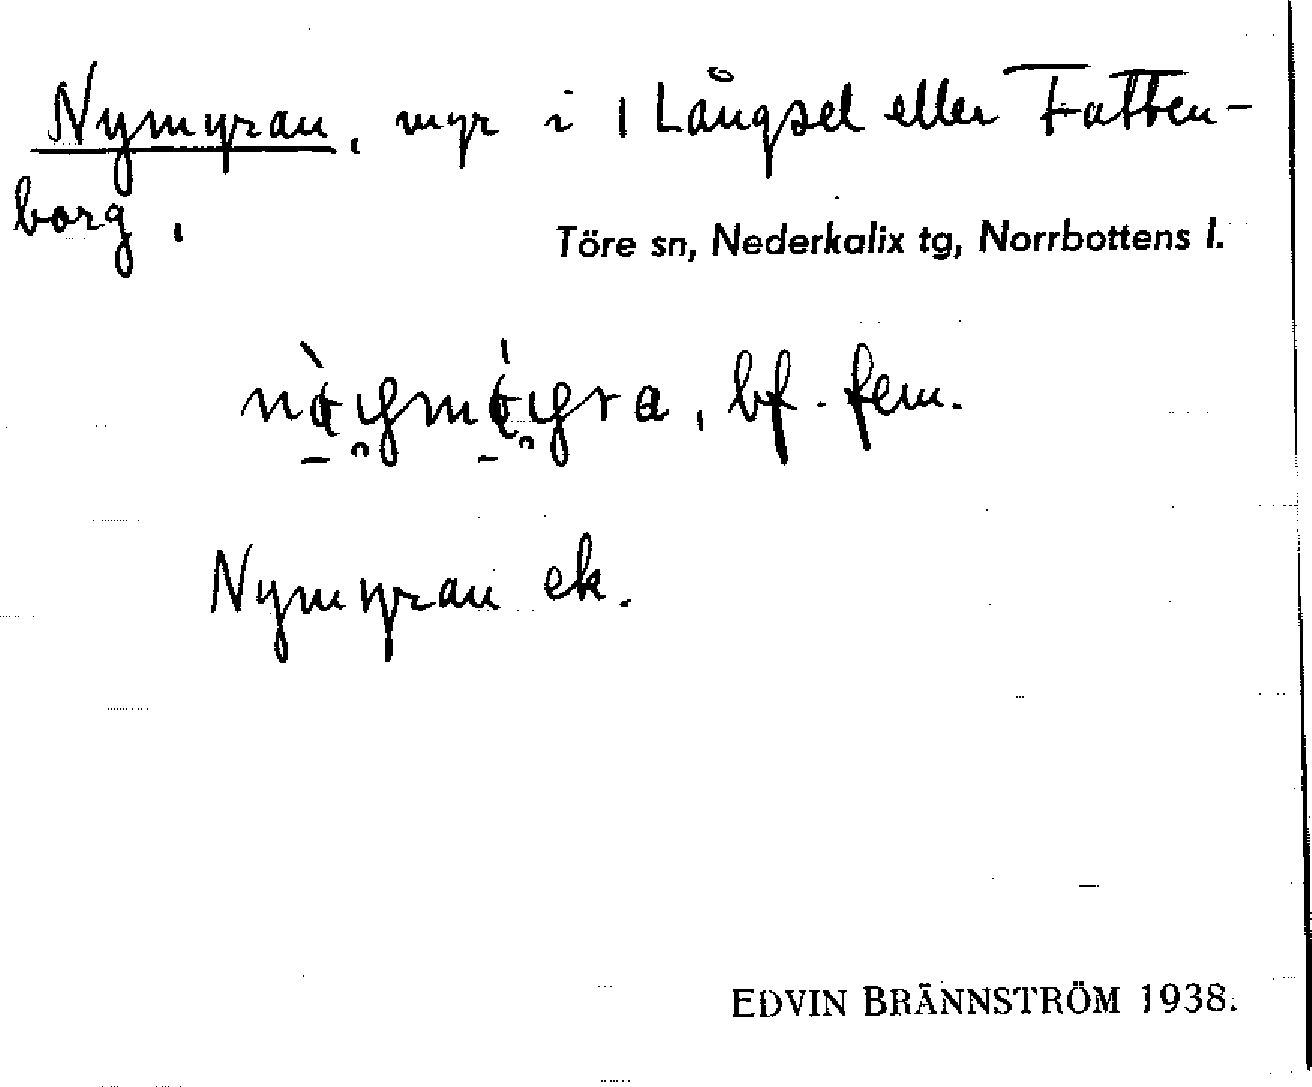 Nymyran, myr i 1 Långsel eller Fatten-
borg,
Töre sn, Nederkalix tg, Norrbottens l.
bf. fem.
Nymyran ek.
EDVIN BRÄNNSTRÖM 1938.